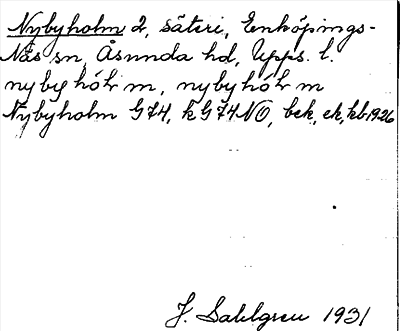 Nybyholm 2, säteri, Enköpings-
Näs sn, Åsunda hd, Upps. l.
nybyhól m, nybyhól m
Nybyholm G74, kG74NO, bek, ek, kb 1926
J. Sahlgren 1931